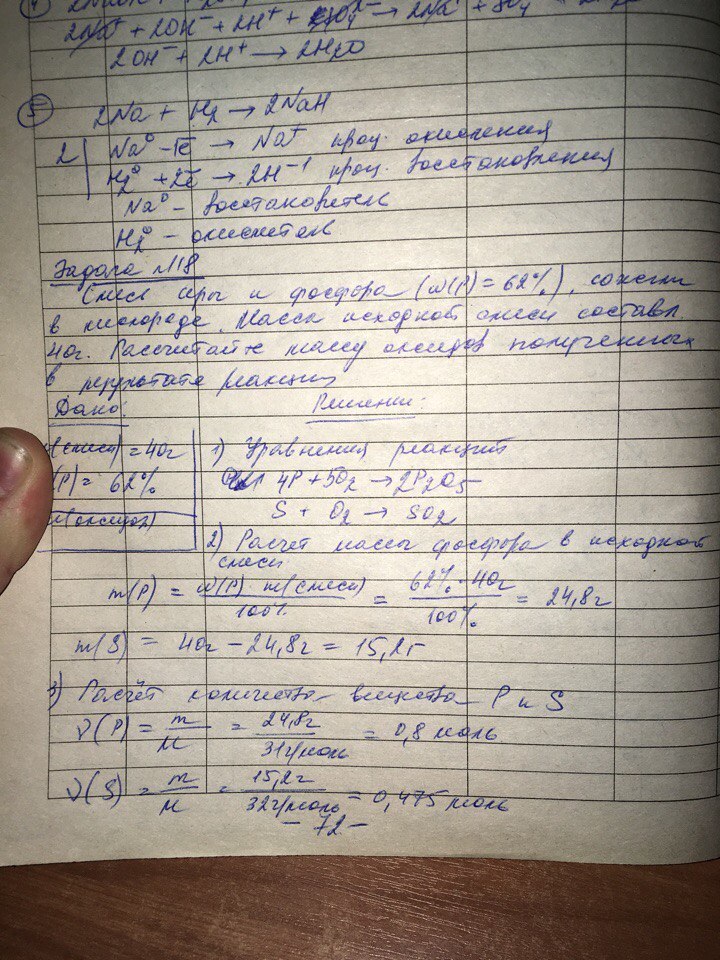 2Na⁺ + 2OH⁻ + 2H⁺ + SO₄²⁻ → 2Na⁺ + SO₄
2OH⁻ + 2H⁺ → 2H₂O
5 2Na + H₂ → 2NaH
2 | Na⁰ – 1ē → Na⁺ проц. окисления
H₂⁰ + 2ē → 2H⁻¹ проц. восстановления
Na⁰ – восстановитель
H₂⁰ – окислитель
Задача №18
Смесь серы и фосфора (ω(P) = 62%), сожгли
в кислороде. Масса исходной смеси составл.
40г. Рассчитайте массу оксидов полученных
в результате реакции
Дано: Решение:
m(смеси) = 40г 1) Уравнения реакций
(P) = 62% 4P + 5O₂ → 2P₂O₅
m(оксидов) S + O₂ → SO₂
2) Расчет массы фосфора в исходной
смеси
m(P) = ω(P) · m(смеси) / 100% = 62% · 40г / 100% = 24,8г
m(S) = 40г – 24,8г = 15,2г
3) Расчёт количества вещества P и S
ν(P) = m / M = 24,8г / 31г/моль = 0,8 моль
ν(S) = m / M = 15,2г / 32г/моль = 0,475 моль
– 72 –